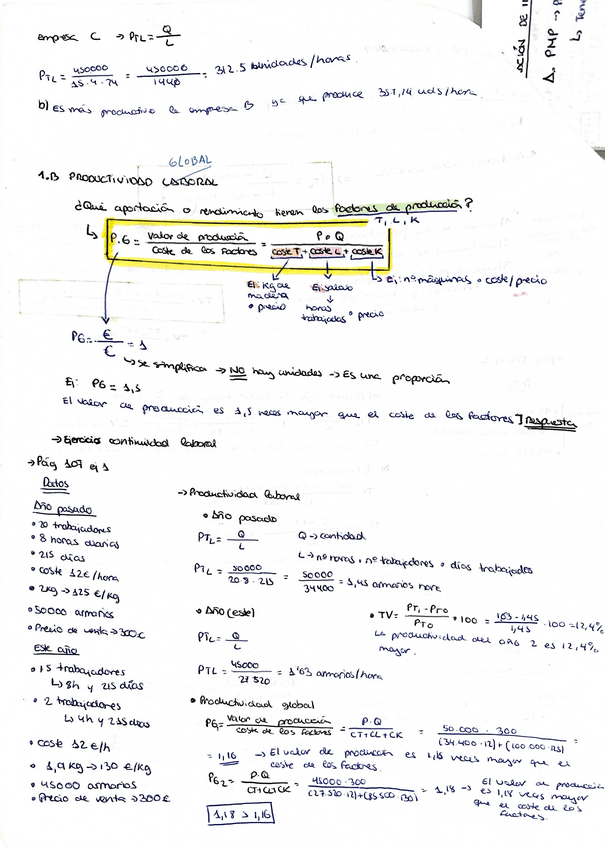 empresa C → PTL = Q/L
PTL = 450000/15·4·24 = 450000/1440 = 312.5 unidades/horas.
b) Es más productivo la empresa B ya que produce 357,14 uds/hora.
ACIÓN DE
Δ. PMP →
GLOBAL
1.B PRODUCTIVIDAD LABORAL
¿Qué aportación o rendimiento tienen los factores de producción?
T, L, K
↳ P.G = Valor de producción/Coste de los factores = P·Q/coste T + coste L + coste K
Ej: Kg de madera · precio
Ej: salario ↓ horas trabajadas · precio
↳ Ej: nº máquinas · coste/precio
PG = €/€ = 1
↳ se simplifica → NO hay unidades → Es una proporción
Ej: PG = 1,5
El valor de producción es 1,5 veces mayor que el coste de los factores] respuesta
→ Ejercicios continuidad laboral
→ Pág 107 ej 1
Datos
Año pasado
• 20 trabajadores
• 8 horas diarias
• 215 días
• coste 12€/hora
• 2kg → 125 €/kg
• 50000 armarios
• Precio de venta → 300€
Este año
• 15 trabajadores
↳ 8h y 215 días
• 2 trabajadores
↳ 4h y 215 días
• coste 12 €/h
• 1,9kg → 130 €/kg
• 45000 armarios
• Precio de venta → 300€
→ Productividad laboral
• Año pasado
PTL = Q/L
Q → cantidad
L → nº horas · nº trabajadores · días trabajados
PTL = 50000/20·8·215 = 50000/34400 = 1,45 armarios hora
• Año (este)
PTL = Q/L
PTL = 45000/27520 = 1'63 armarios/hora
• TV = PT1 - PT0/PT0 · 100 = 1,63 - 1,45/1,45 · 100 = 12,4%
La productividad del año 2 es 12,4% mayor.
• Productividad global
PG1 = Valor de producción/coste de los factores = P·Q/CT+CL+CK = 50.000·300/(34.400·12)+(100.000·125) =
= 1,16 → El valor de producción es 1,16 veces mayor que el coste de los factores.
PG2 = P·Q/CT+CL+CK = 45000·300/(27.520·12)+(85.500·130) = 1,18 → El valor de producción es 1,18 veces mayor que el coste de los factores.
1,18 > 1,16